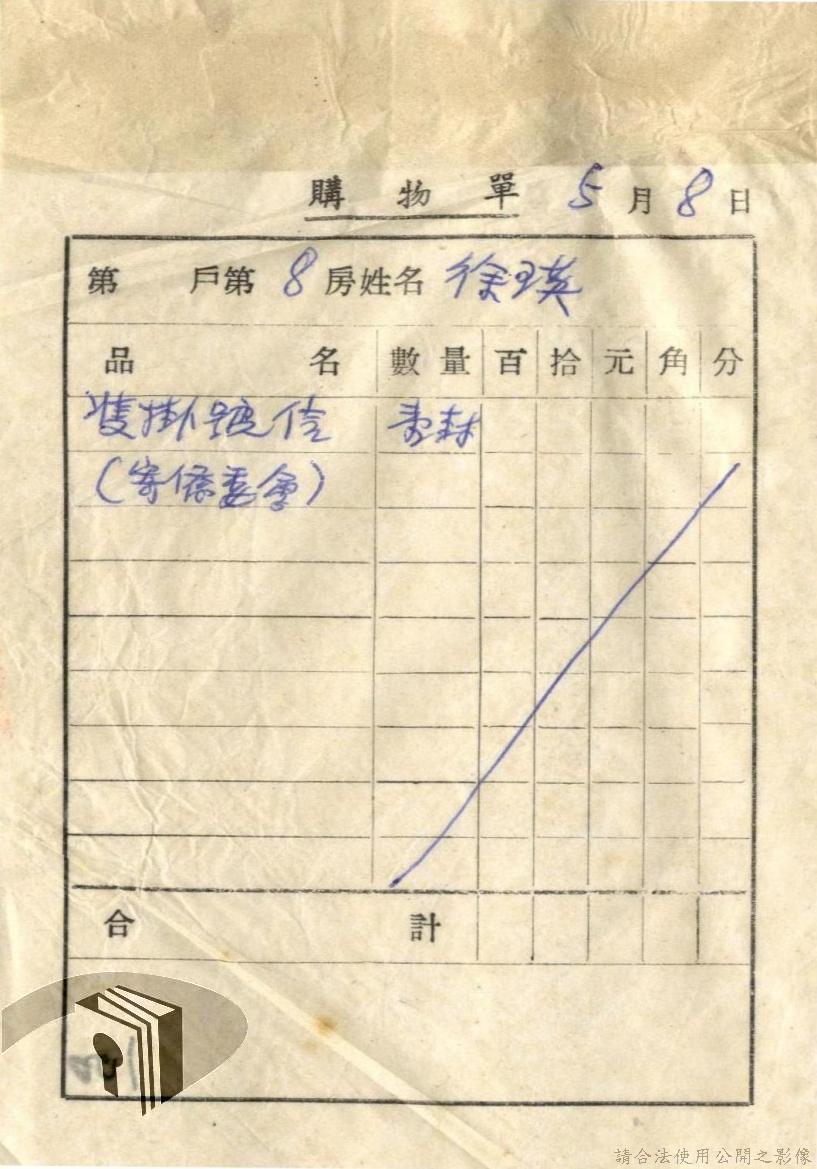 購物單 5月8日
第 戶第 8 房姓名 徐瑛
品名 數量 百 拾 元 角 分
雙掛號信 壹封
(寄僑委會)
合計
請合法使用公開之影像